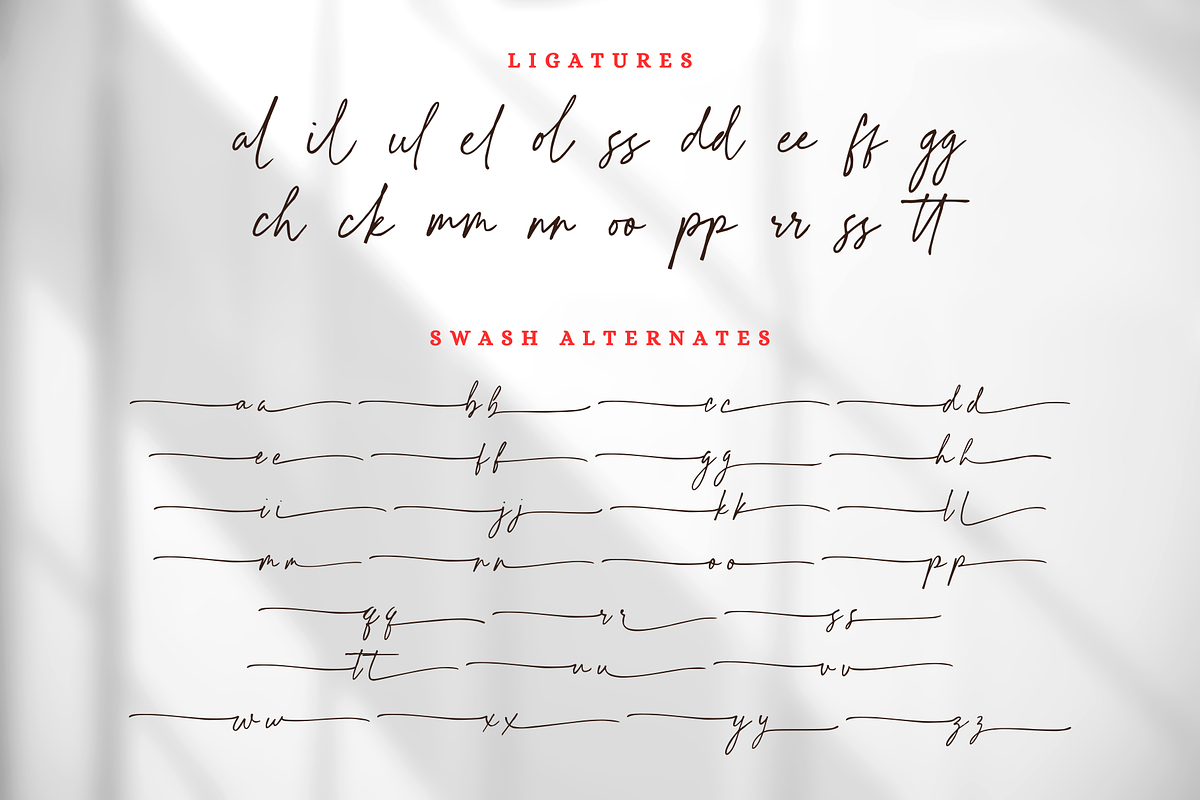 LIGATURES
al il ul el ol ss dd ee ff gg
ch ck mm nn oo pp rr ss tt
SWASH ALTERNATES
aa bb cc dd
ee ff gg hh
ii jj kk ll
mm nn oo pp
qq rr ss
tt uu vv
ww xx yy zz